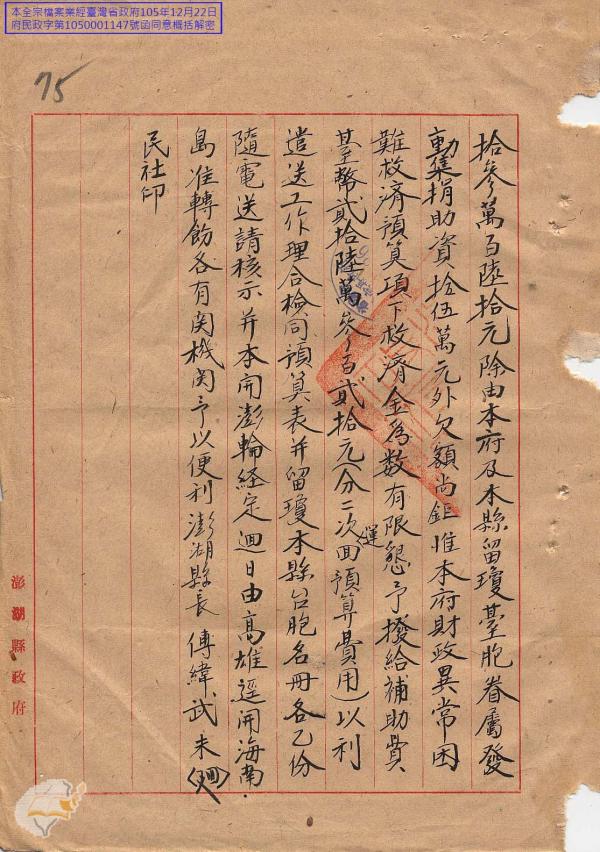 本全宗檔案業經臺灣省政府105年12月22日
府民政字第1050001147號函同意概括解密
75
拾參萬百陸拾元除由本府及本縣留瓊臺胞眷屬發
動集捐助資拾伍萬元外欠額尚鉅惟本府財政異常困
難救濟預算項下救濟金為數有限懇予撥給補助費
臺幣貳拾陸萬參百貳拾元(分二次回運預算費用)以利
遣送工作理合檢同預算表并留瓊本縣台胞名冊各乙份
隨電送請核示并本開澎輪経定迴日由高雄逕開海南
島准轉飭各有関機関予以便利澎湖縣長傅緯武未(迴)
民社印
澎湖縣政府